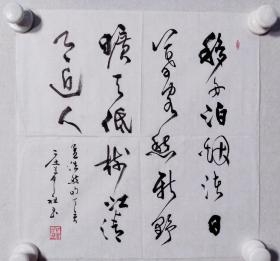 移舟泊烟渚日
暮客愁新野
曠天低树江清
月近人
孟浩然